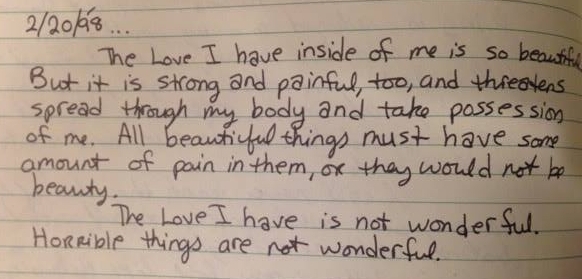 2/20/98...
The Love I have inside of me is so beautiful
But it is strong and painful, too, and threatens
spread through my body and take possession
of me. All beautiful things must have some
amount of pain in them, or they would not be
beauty.
The Love I have is not wonderful.
Horrible things are not wonderful.